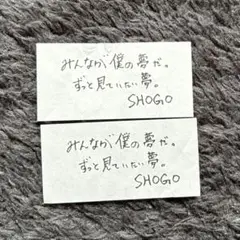 みんなが僕の夢だ。
ずっと見ていたい夢。
SHOGO
みんなが僕の夢だ。
ずっと見ていたい夢。
SHOGO